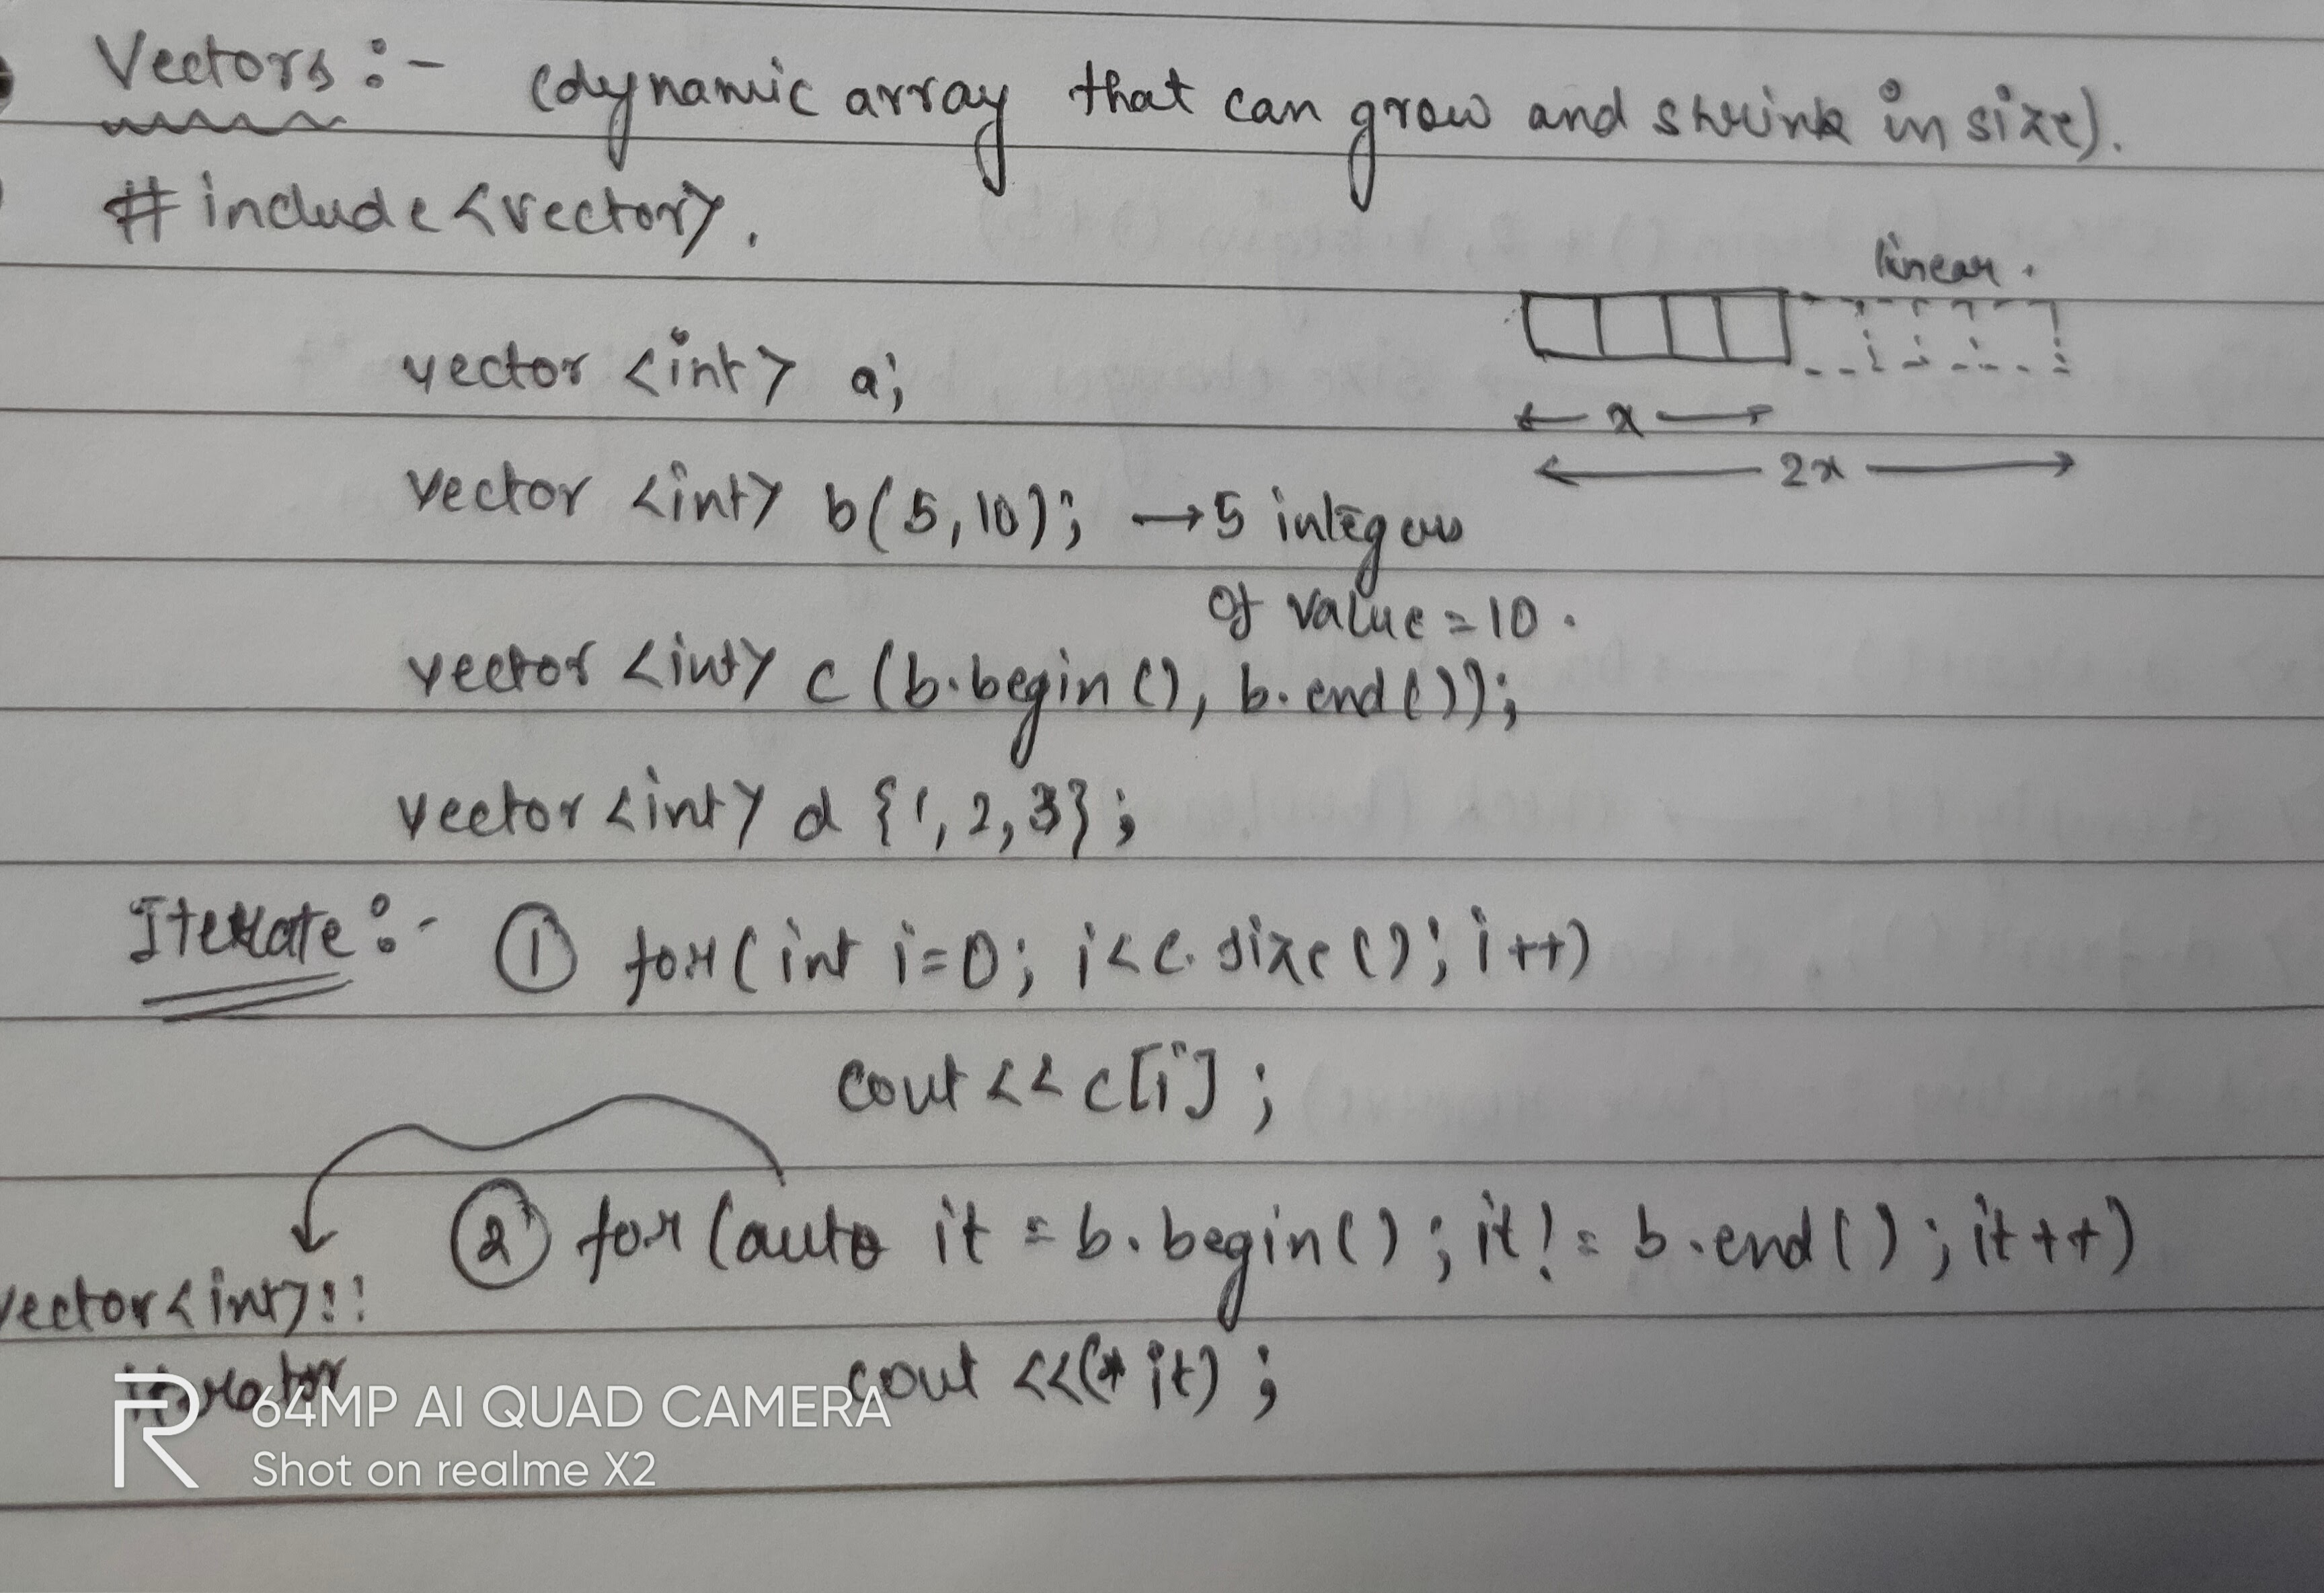 Vectors :- (dynamic array that can grow and shrink in size).
# include <vector>.
linear.
vector <int> a;
x
2x
vector <int> b(5,10); → 5 integers
of value = 10.
vector <int> c (b.begin(), b.end());
vector <int> d {1, 2, 3};
Iterate :- ① for( int i=0; i<c.size(); i++)
cout << c[i] ;
② for (auto it = b.begin(); it != b.end(); it++)
vector<int>::
iterator
cout <<(* it) ;
64MP AI QUAD CAMERA
Shot on realme X2